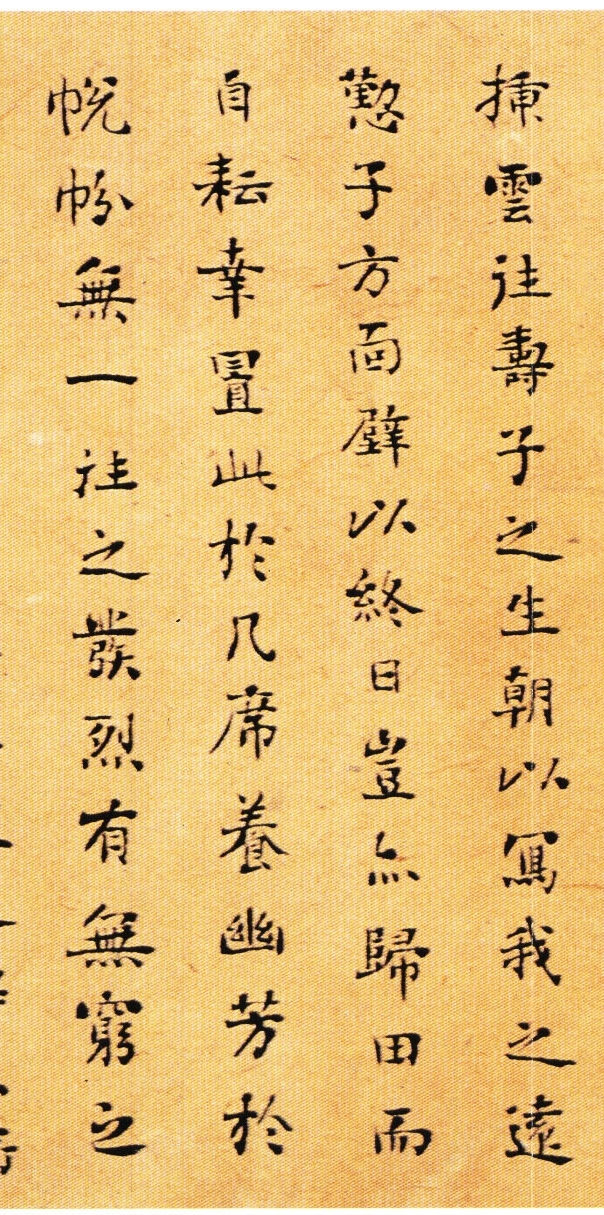 揷雲往壽子之生朝以寫我之遠
懃子方面壁以終日豈亦歸田而
自耘幸置此於几席養幽芳於
帨帉無一往之發烈有無窮之